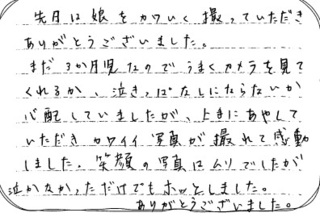 先月は娘をカワいく撮っていただき
ありがとうございました。
まだ3か月児なのでうまくカメラを見て
くれるか、泣きっぱなしにならないか
心配していましたが、上手にあやして
いただきカワイイ写真が撮れて感動
しました。笑顔の写真はムリでしたが
泣かなかっただけでもホッとしました。
ありがとうございました。